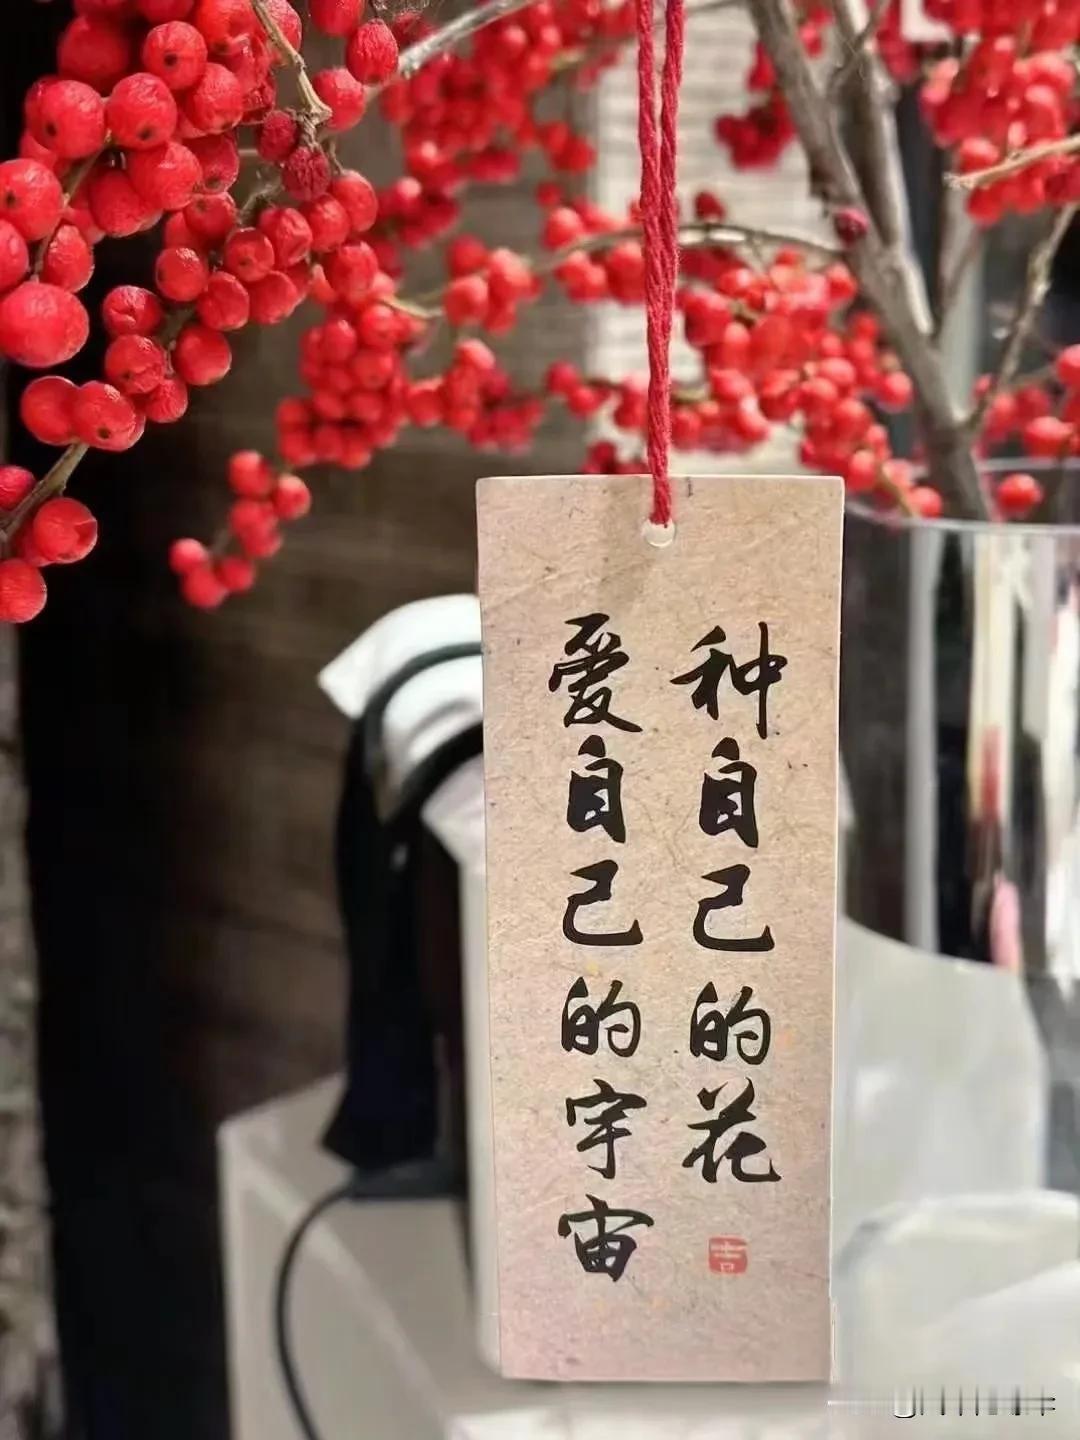 种自己的花
爱自己的宇宙
吉